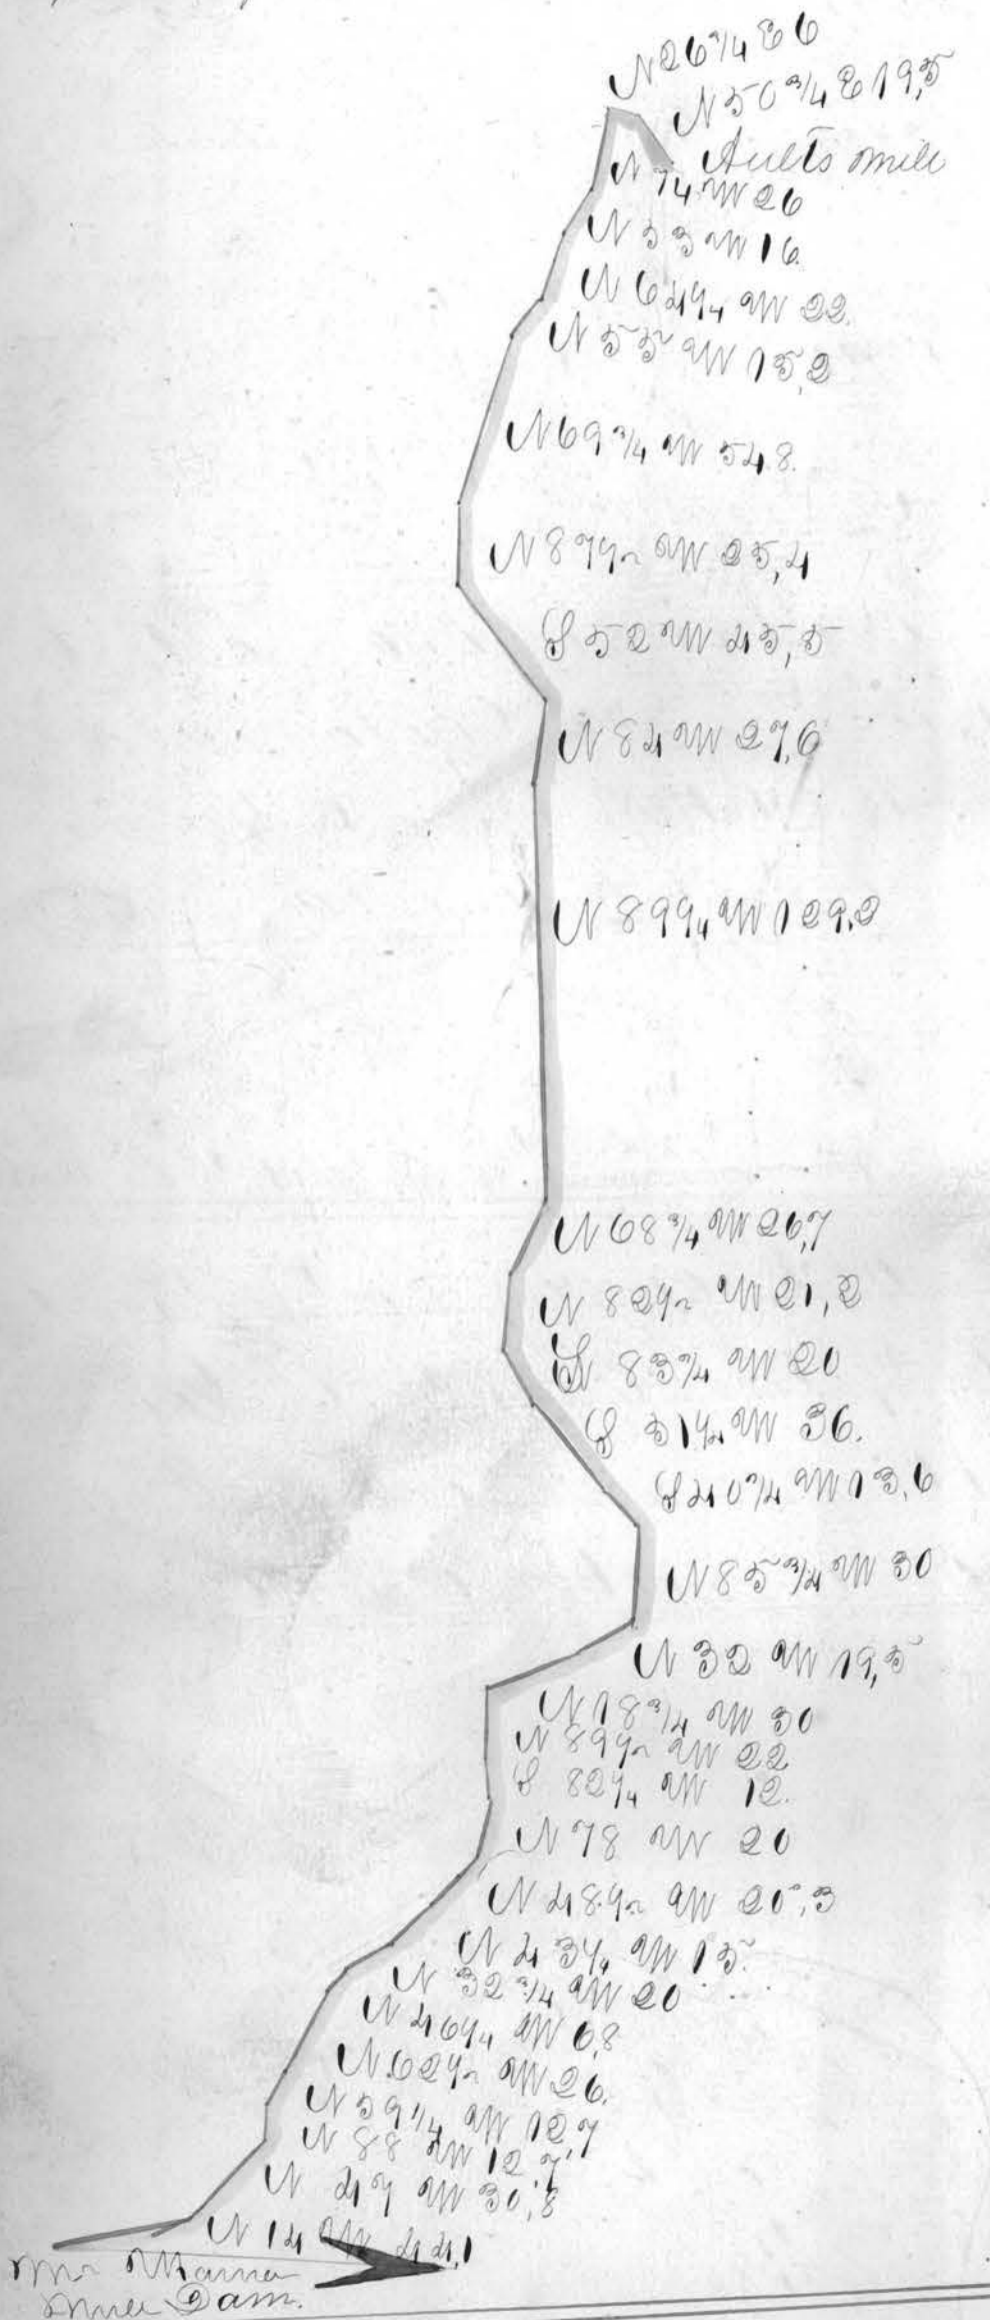 N 26¾ E 6
N 50¾ E 19,5
Aults mill
N 74 W 26
N 55 W 16
N 64¼ W 22.
N 55 W 15,2
N 69¾ W 54.8
N 87½ W 25,4
S 52 W 45,5
N 84 W 27,6
N 89¼ W 129,2
N 68¾ W 26,7
N 82½ W 21,2
83¾ W 20
S 51½ W 36.
S 40¾ W 13,6
N 85¾ W 30
N 32 W 19,5
N 18¾ W 30
N 89½ W 22
S 82¼ W 12.
N 78 W 20
N 48½ W 20,3
N 43¼ W 15.
N 32¾ W 20
N 46¼ W 6,8
N 62½ W 26.
N 59¼ W 12,7
N 88 W 12,7
N 47 W 30,8
N 14 W 44,1
Mr
Mill Dam.